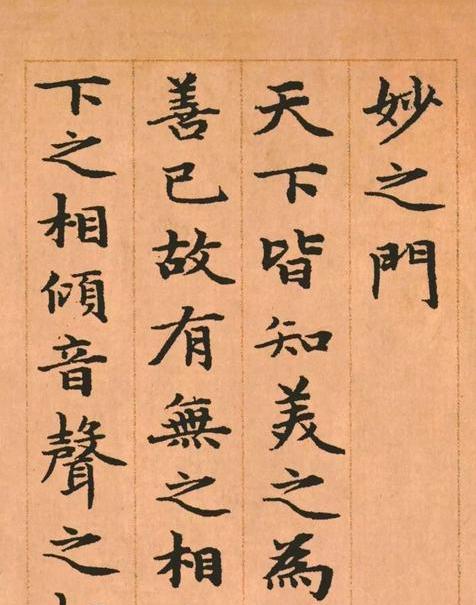 妙之門
天下皆知美之為
善已故有無之相
下之相傾音聲之